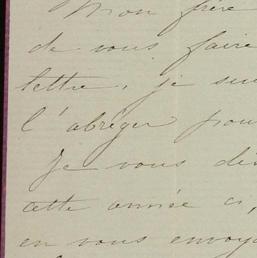 Mon frère
de vous faire
lettre, je
l'abréger pour
Je vous
cette année ci,
en vous